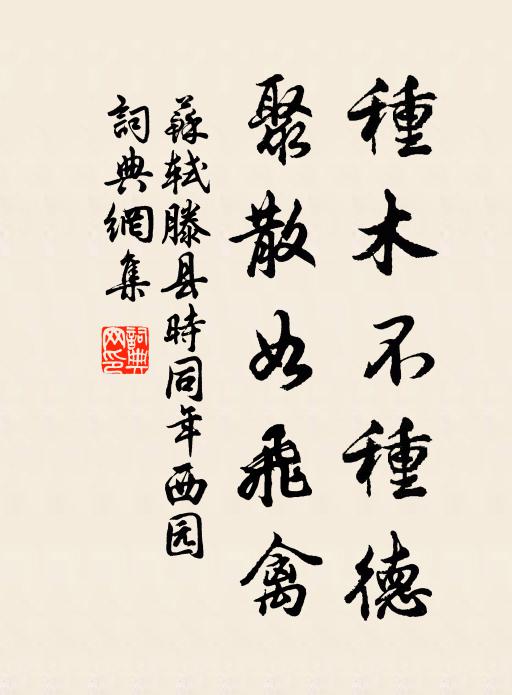 種木不種德
聚散如飛禽
蘇轼滕县時同年西园
詞典網集
詞典網印